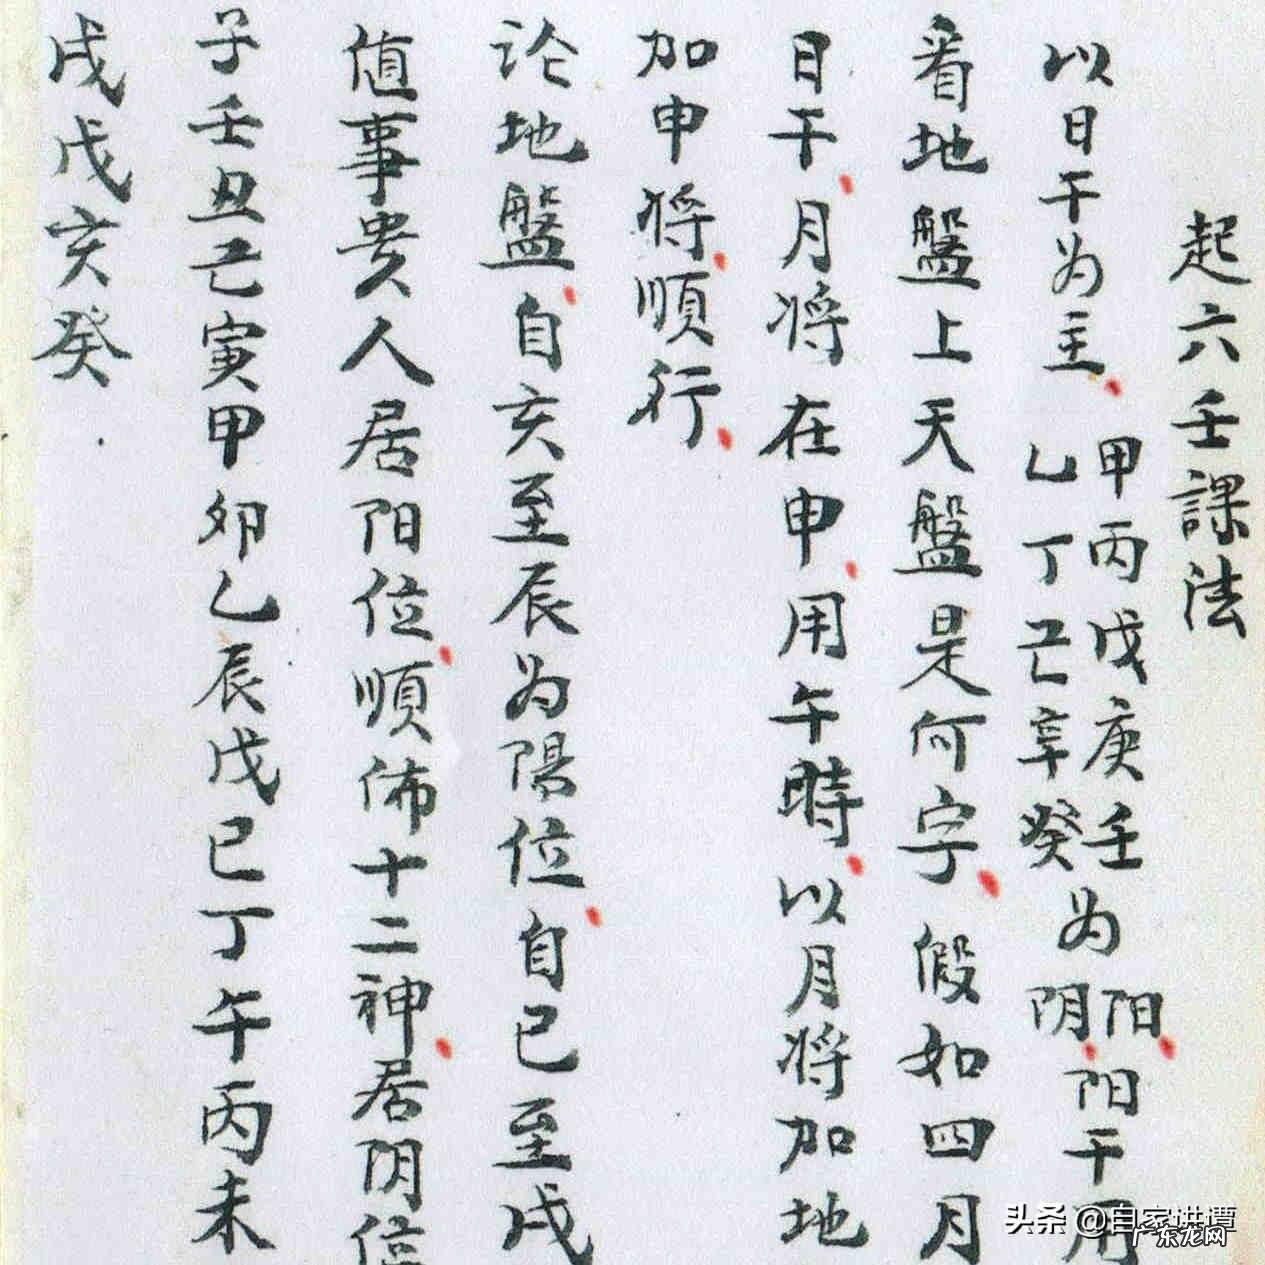 起六壬課法
以日干为主甲丙戊庚壬乙丁己辛癸为阳阴阳干用
看地盤上天盤是何字假如四月
日干月将在申用午時以月将加地
加申将順行
论地盤自亥至辰为陽位自巳至戌
值事贵人居阳位順佈十二神居阴位
子壬丑己寅甲卯乙辰戊巳丁午丙未
戌戊亥癸
头条 @自家讲谭
广东龙网